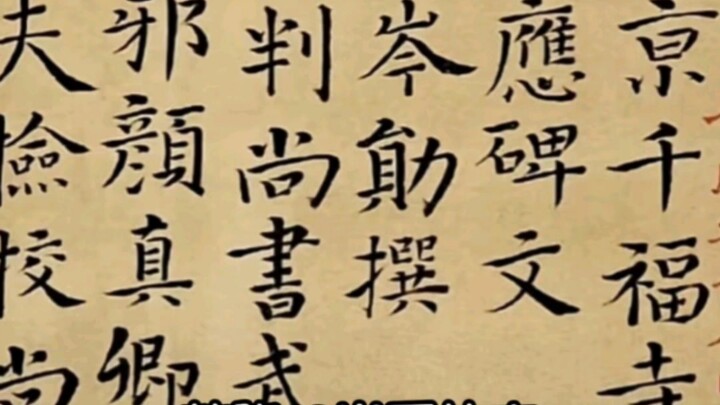 京千福寺
應碑文
岑勛撰
判尚書武
邪顏真卿
夫檢校尚